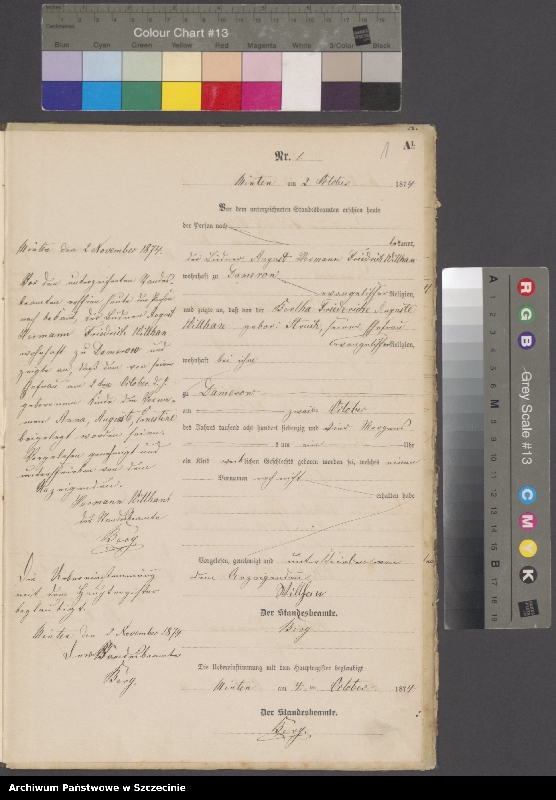 Colour Chart #13
Blue Cyan Green Yellow Red Magenta White 3/Color Black
A1
1
Nr. 1
am 2 October 1874
Vor dem unterzeichneten Standesbeamten erschien heute
der Person nach
bekannt,
der Büdner August Hermann Friedrich Witthan
wohnhaft zu Dameron
evangelischer Religion,
und zeigte an, daß von der Bertha Friederike Auguste
Witthan, seiner Ehefrau
evangelischer Religion,
wohnhaft bei ihm
zu Dameron
am zweiten October
des Jahres tausend acht hundert siebenzig und vier Morgens
um ein Uhr
ein Kind weiblichen Geschlechts geboren worden sei, welches einen
Vornamen noch nicht
erhalten habe
Vorgelesen, genehmigt und unterschrieben von
dem Anzeigenden
Der Standesbeamte.
Berg
Die Uebereinstimmung mit dem Hauptregister beglaubigt
am 4. October 1874
Der Standesbeamte.
Berg.
den 2 November 1874.
Vor dem unterzeichneten Standes
beamten erschien heute der Person
nach bekannt, der Büdner August
Hermann Friedrich Witthan
wohnhaft zu Damerow und
zeigte an, daß dem von seiner
Ehefrau am 2ten October d. J.
geborenen Kinde die Vorna-
men Anna, Auguste, Ernestine
beigelegt worden seien.
Vorgelesen genehmigt und
unterschrieben von dem
Anzeigenden.
Hermann Witthan
der Standesbeamte
Berg
Die Uebereinstimmung
mit dem Hauptregister
beglaubigt.
den 2 November 1874
Der Standesbeamte
Berg.
Grey Scale #13
A
M
B
R
G
B
C
M
Y
K
Archiwum Państwowe w Szczecinie